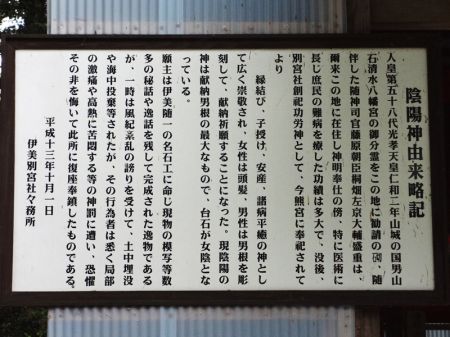 陰陽神由来略記
人皇第五十八代光孝天皇仁和二年山城の国男山
石清水八幡宮の御分霊をこの地に勧請の砌、随
伴した随神司官藤原朝臣桐畑左京大輔盛重は、
爾来この地に在住し神明奉仕の傍、特に医術に
長じ庶民の難病を療した功績は多大で、没後、
別宮社創祀功労神として、今熊宮に奉祀されて
より
縁結び、子授け、安産、諸病平癒の神とし
て広く崇敬され、女性は頭髪、男性は男根を彫
刻して、献納祈願することになった。現陰陽の
神は献納男根の最大なもので、台石が女陰とな
っている。
願主は伊美随一の名石工に命じ現物の模写等数
多の秘話や逸話を残して完成された逸物である
が、一時は風紀紊乱の謗りを受けて、土中埋没
や海中投棄等されたが、その行為者は悉く局部
の激痛や高熱に苦悶する等の神罰に遭い、恐懼
その非を悔いて此所に復座奉鎮したものである。
平成十三年十月一日
伊美別宮社々務所